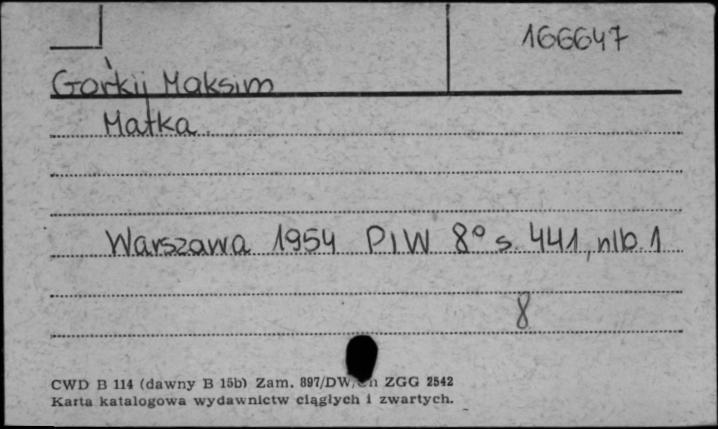 166647
Gor'kij Maksim
Matka.
Warszawa 1954 PIW 8° s. 441, nlb. 1
8
CWD B 114 (dawny B 15b) Zam. 897/DW, ZGG 2542
Karta katalogowa wydawnictw ciągłych i zwartych.